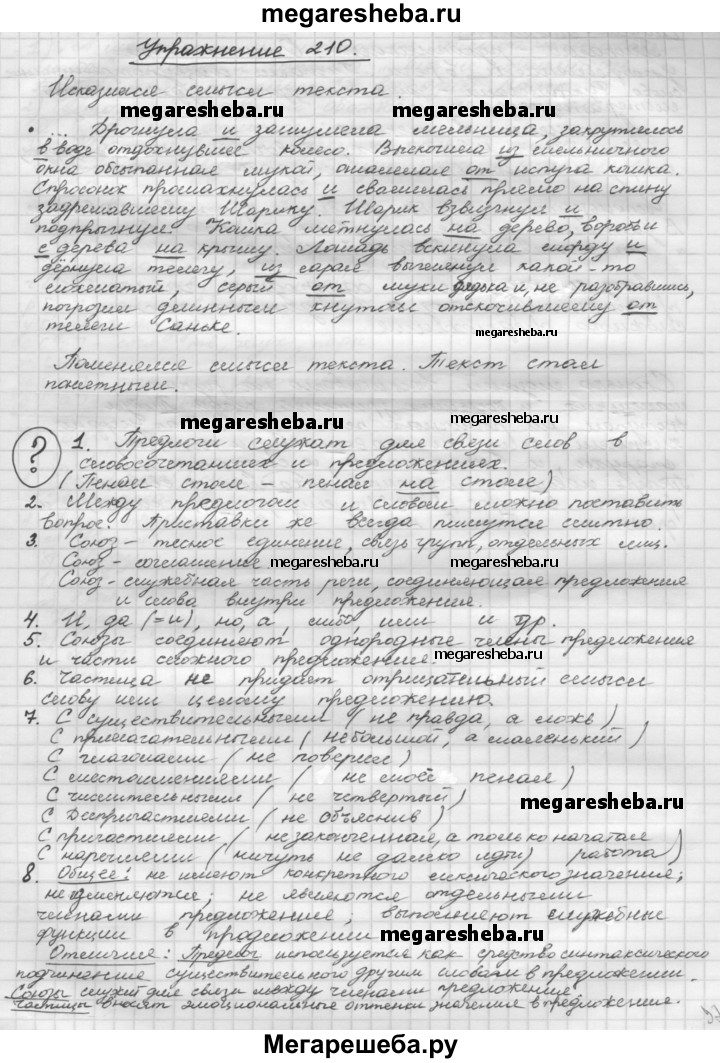 megaresheba.ru
Упражнение 210.
Исказился смысл текста.
megaresheba.ru megaresheba.ru
• ... Дрогнула и зашумела мельница, закрутилось
в воде отдохнувшее колесо. Выскочила из мельничного
окна обсыпанная мукой, ошалелая от испуга кошка.
Спросонок промахнулась и свалилась прямо на спину
задремавшему Шарику. Шарик взвизгнул и
подпрыгнул. Кошка метнулась на дерево, воробьи
с дерева на крышу. Лошадь вскинула морду и
дёрнула телегу, из сарая выглянул какой-то
лохматый, серый от муки дядька и, не разобравшись,
погрозил длинным кнутом отскочившему от
телеги Саньке.
megaresheba.ru
Поменялся смысл текста. Текст стал
понятным.
megaresheba.ru megaresheba.ru
? 1. Предлоги служат для связи слов в
словосочетаниях и предложениях.
(Пенал стол – пенал на столе)
2. Между предлогом и словом можно поставить
вопрос. Приставки же всегда пишутся слитно.
3. Союз – тесное единение, связь групп, отдельных лиц.
Союз – соглашение
megaresheba.ru megaresheba.ru
Союз – служебная часть речи, соединяющая предложения
и слова внутри предложения.
4. И, да (=и), но, а, либо, или и др.
5. Союзы соединяют однородные члены предложения
и части сложного предложения.
megaresheba.ru
6. Частица не придает отрицательный смысл
слову или целому предложению.
7. С существительными (не правда, а ложь)
megaresheba.ru
С прилагательными (небольшой, а маленький)
С глаголами (не поверил)
С местоимениями (не моей пенал)
С числительными (не четвертый)
megaresheba.ru
С Деепричастиями (не объяснив)
С причастиями (не законченная, а только начатая
С наречиями (ничуть не далеко идти) работа)
8. Общее: не имеют конкретного лексического значения;
не изменяются; не являются отдельными
членами предложения; выполняют служебные
функции в предложении
megaresheba.ru
Отличия: Предлог используется как средство синтаксического
подчинения существительного другим словам в предложении.
Союзы служат для связи между членами предложения.
Частицы вносят эмоциональные оттенки значения в предложение.
Мегарешеба.ру